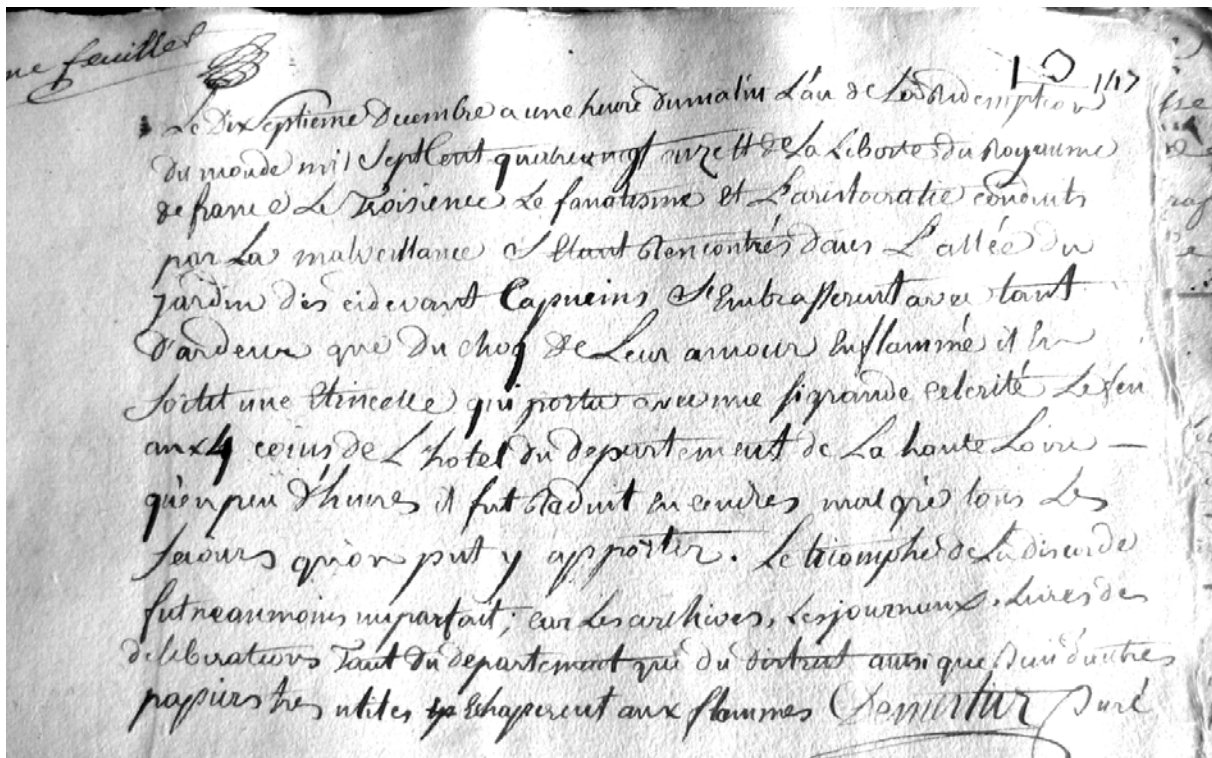 me feuillet
10 147
Le Dixseptieme Decembre a une heure du matin L'an de La Redemption
du monde mil Sept Cent quatre vingt onze Et de La Liberté du Royaume
de france Le Troisieme Le fanatisme et L'aristocratie conduits
par La malveillance S'Etant Rencontrés dans L'allée du
Jardin des cidevant Capucins, S'Embrasserent avec tant
D'ardeur que du choq de Leur amour Enflammé il En
Sortit une Etincelle qui porta avec une si grande celerité Le feu
aux 4 coins de L'hotel du departement de La haute Loire —
qu'en peu d'heures il fut Reduit en cendres malgré tous Les
secours qu'on put y apporter. Le triomphe de La discorde
fut neanmoins imparfait; car Les archives, Les journaux, Livres des
deliberations Tant du departement que du district ainsi que d'autres
papiers tres utiles Echaperent aux flammes Curé